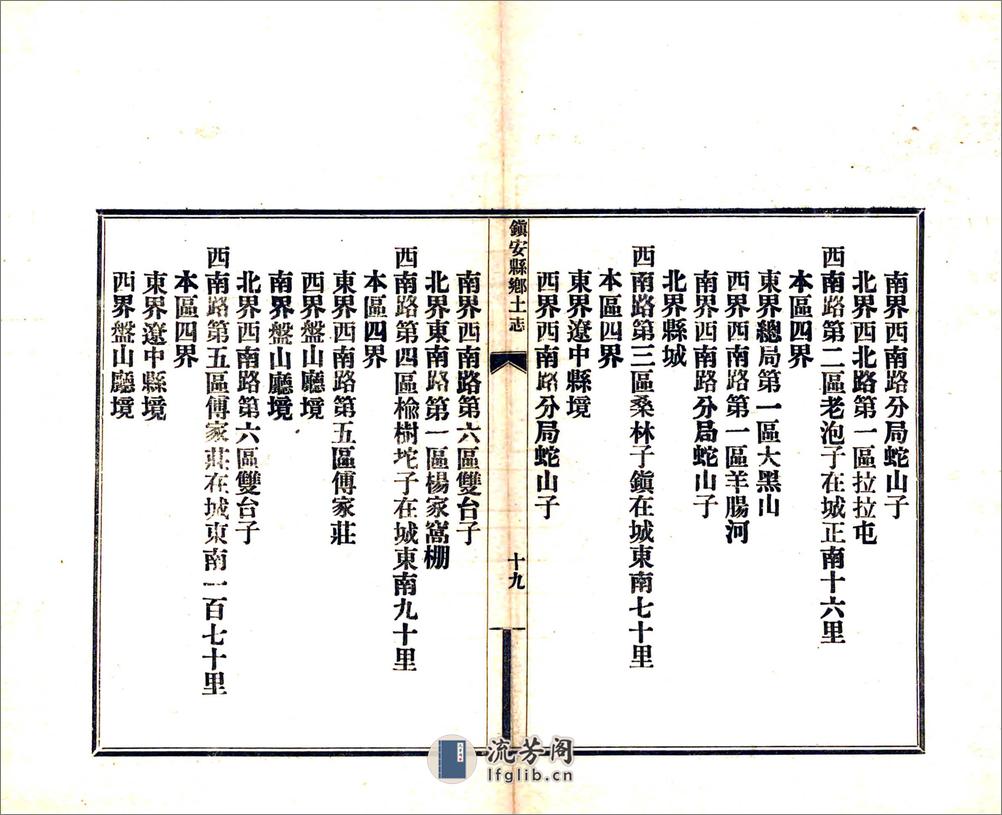 南界西南路分局蛇山子
北界西北路第一區拉拉屯
西南路第二區老泡子在城正南十六里
本區四界
東界總局第一區大黑山
西界西南路第一區羊腸河
南界西南路分局蛇山子
北界縣城
西南路第三區桑林子鎭在城東南七十里
本區四界
東界遼中縣境
西界西南路分局蛇山子
鎭安縣鄉土志
十九
南界西南路第六區雙台子
北界東南路第一區楊家窩棚
西南路第四區楡樹坨子在城東南九十里
本區四界
東界西南路第五區傅家莊
西界盤山廳境
南界盤山廳境
北界西南路第六區雙台子
西南路第五區傅家莊在城東南一百七十里
本區四界
東界遼中縣境
西界盤山廳境
流芳阁
lfglib.cn